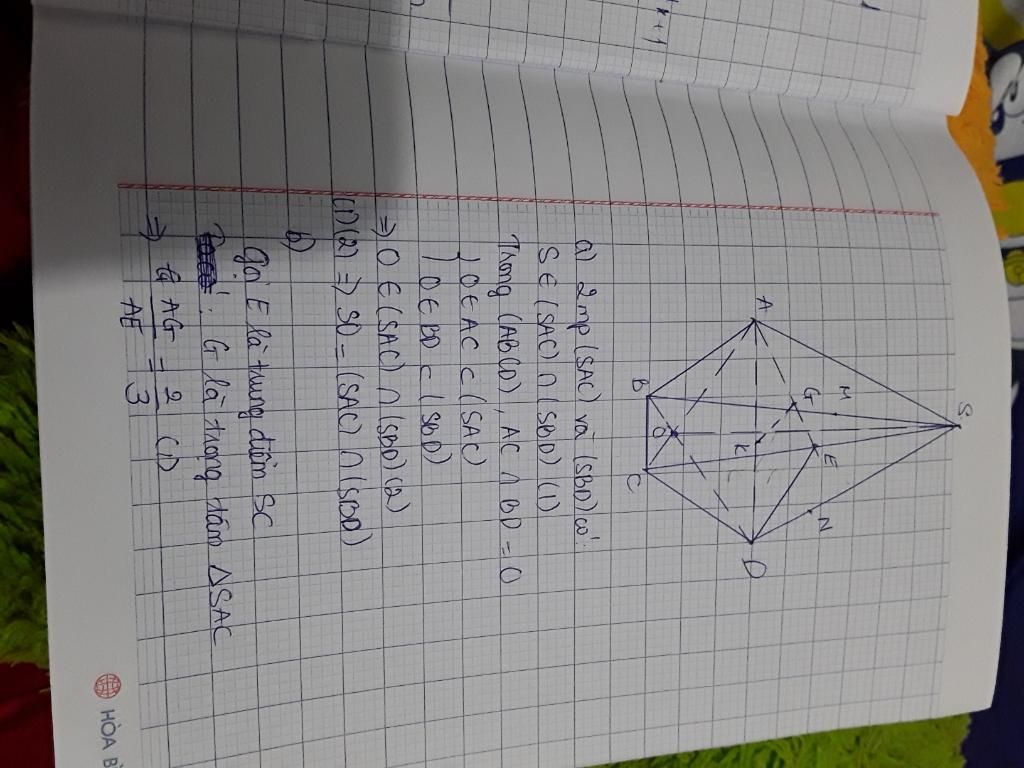 S
M
N
G
E
A
K
D
O
B
C
a) 2mp (SAC) và (SBD) có:
S ∈ (SAC) ∩ (SBD) (1)
Trong (ABCD), AC ∩ BD = O
{ O ∈ AC ⊂ (SAC)
O ∈ BD ⊂ (SBD)
⇒ O ∈ (SAC) ∩ (SBD) (2)
(1)(2) ⇒ SO = (SAC) ∩ (SBD)
b)
Gọi E là trung điểm SC
: G là trọng tâm △SAC
⇒ AG/AE = 2/3 (1)
HÒA B